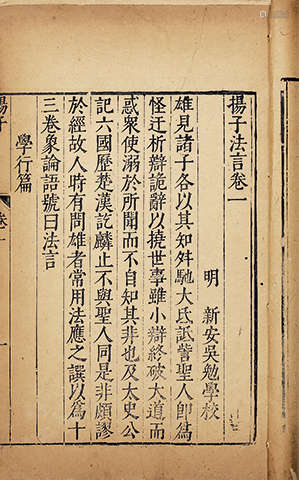 揚子法言卷一
明 新安吳勉學校
雄見諸子各以其知舛馳大氐詆訾聖人即為
怪迂析辯詭辭以撓世事雖小辯終破大道而
惑衆使溺於所聞而不自知其非也及太史公
記六國歷楚漢訖麟止不與聖人同是非頗謬
於經故人時有問雄者常用法應之譔以為十
三卷象論語號曰法言
學行篇